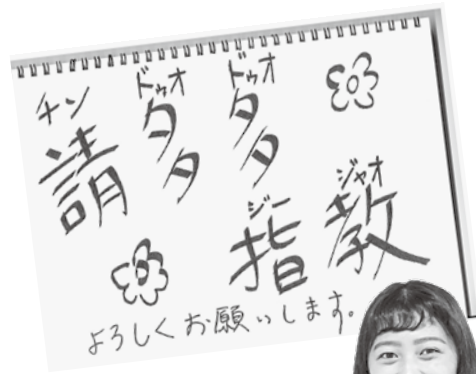 チン ドゥオ ドゥオ
請多多
ジー ジャオ
指教
よろしくお願いします。